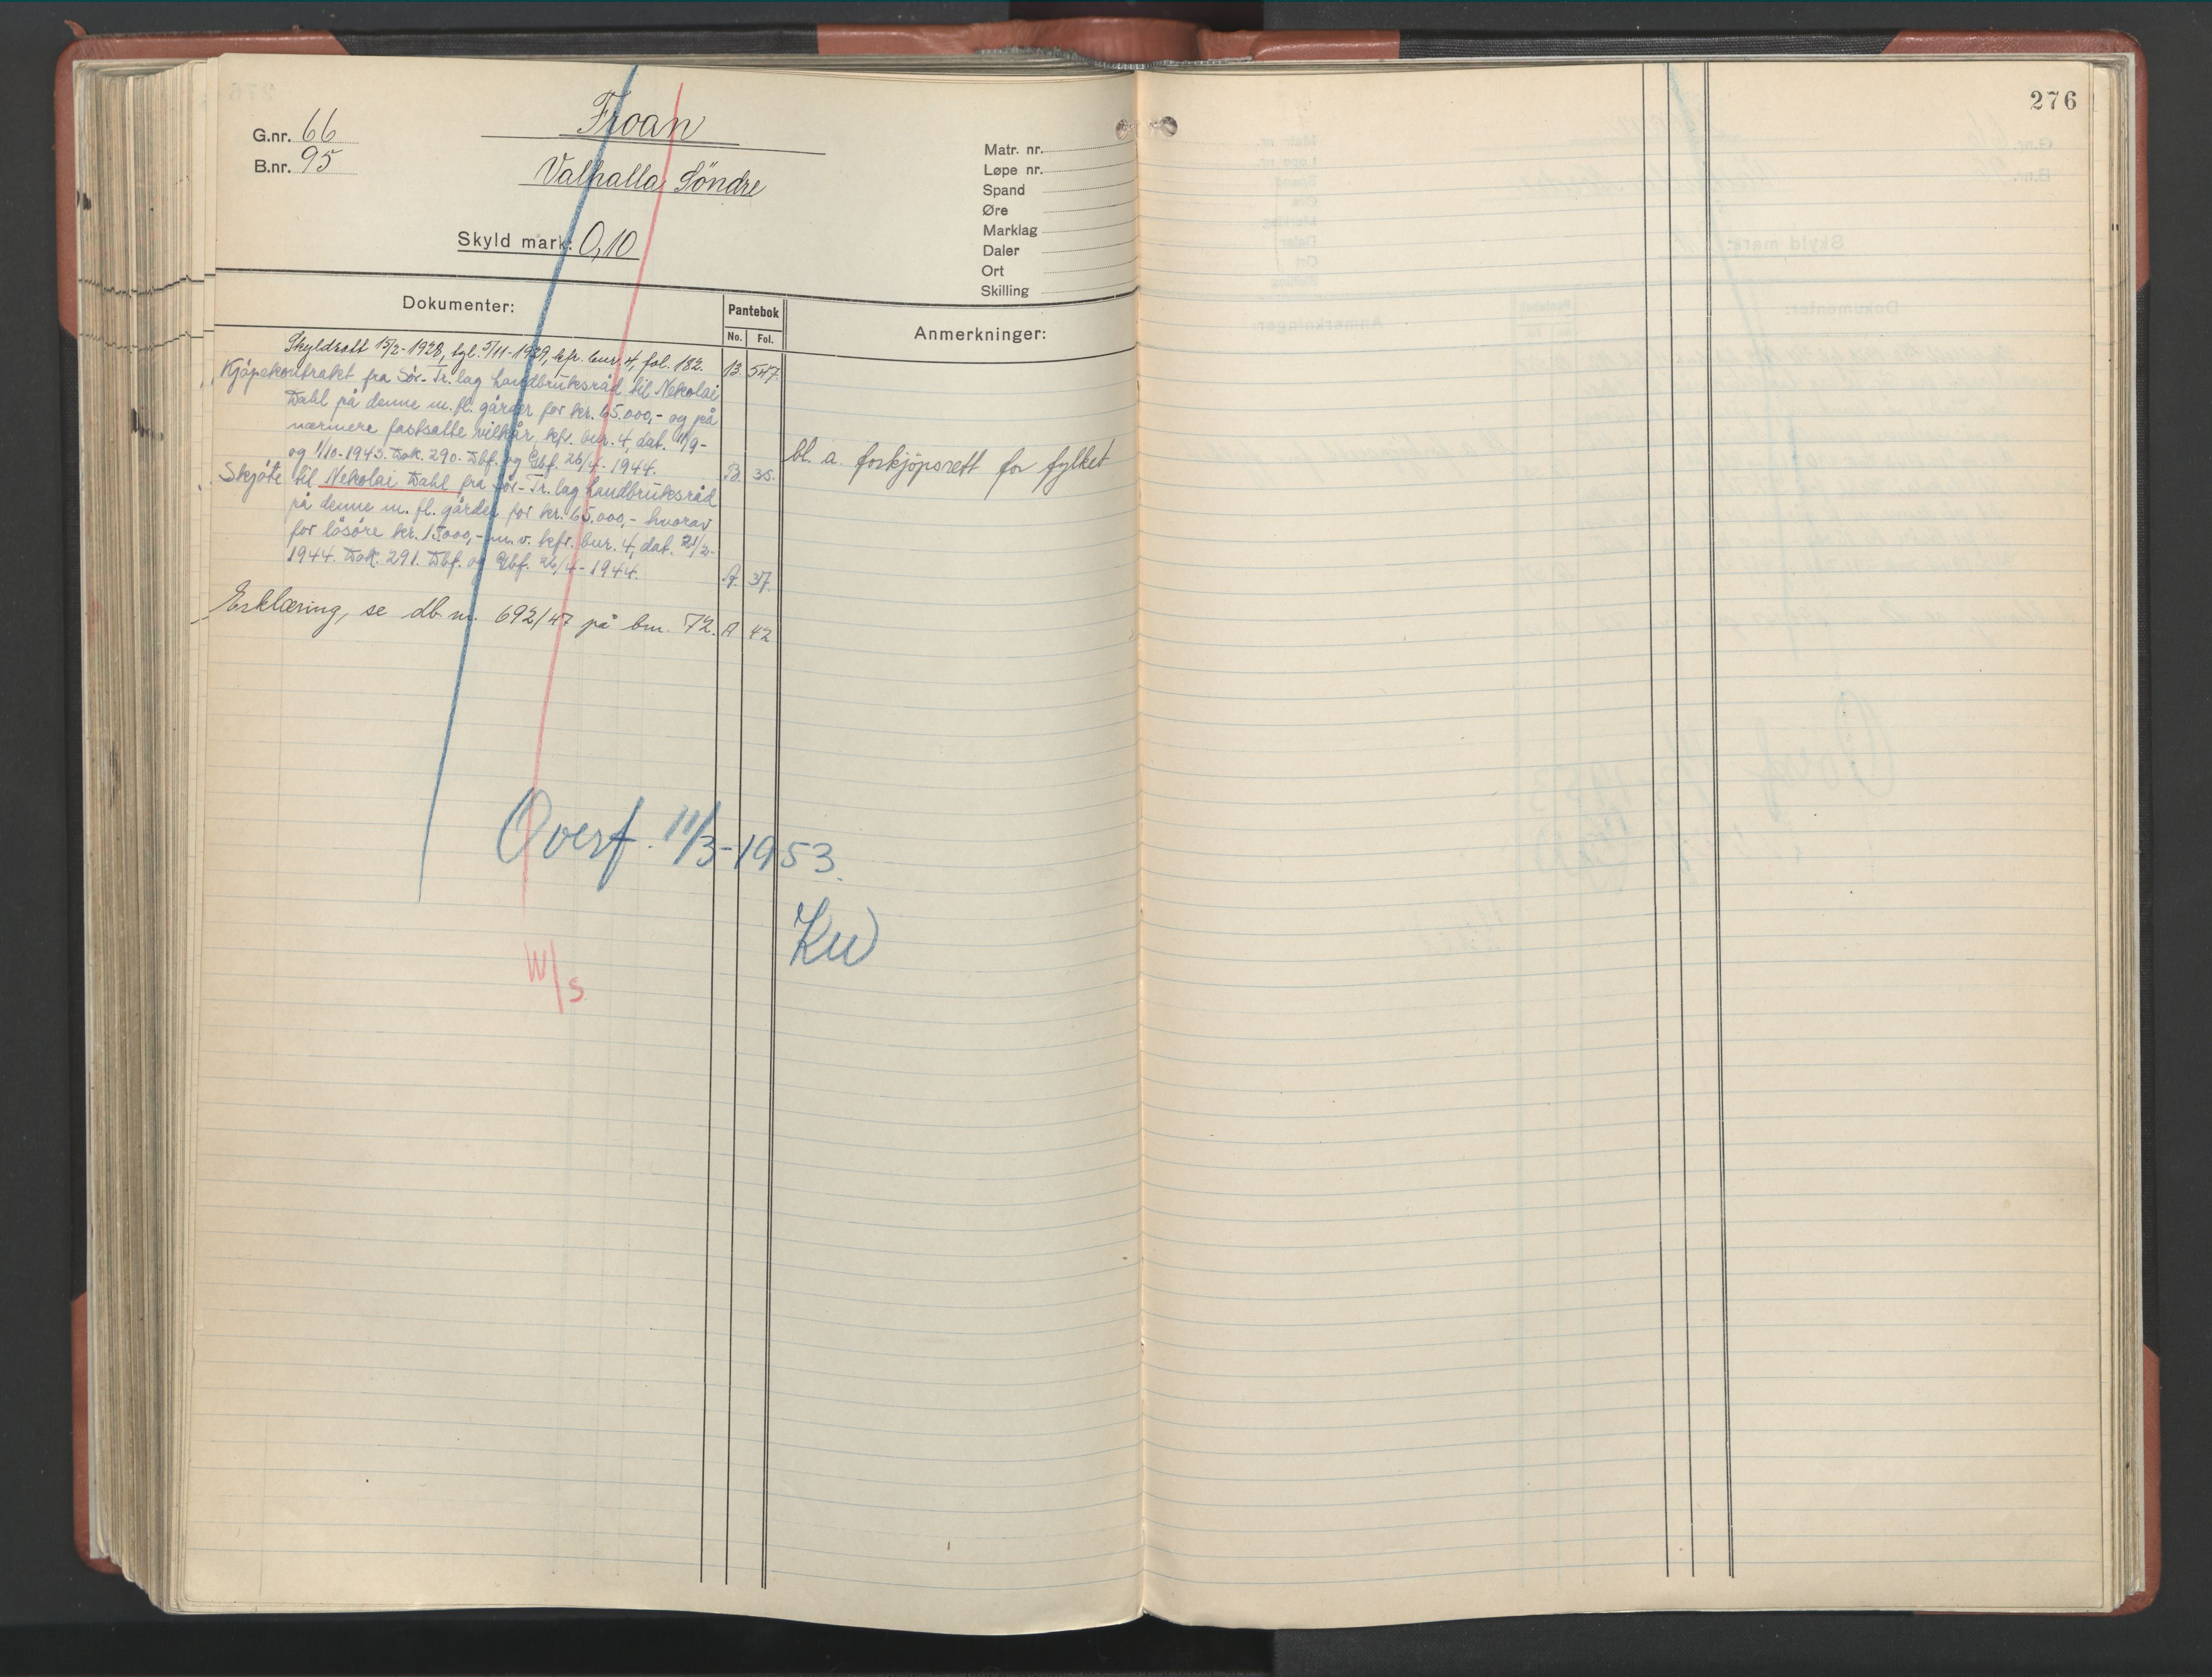 276
G.nr. 66
B.nr. 95
Froan
Valhalla Söndre
Skyld mark: 0,10
Matr. nr.
Løpe nr.
Spand
Øre
Marklag
Daler
Ort
Skilling
Dokumenter:
Pantebok
No. Fol.
Anmerkninger:
Skyldsatt 15/2-1928, tgl. 5/11-1929, kfr. bnr. 4, fol. 182. 13. 547.
Kjöpekontrakt fra Sör-Tr.lag landbruksråd til Nekolai
Dahl på denne m.fl. gårder for kr. 65.000,- og på
nærmere fastsatte vilkår, kfr. bnr. 4, dat. 1/9-
og 1/10-1943. Dok. 290. Dbf. og Gbf. 26/4-1944. B. 35.
bl. a. forkjöpsrett for fylket
Skjöte til Nekolai Dahl fra Sör-Tr.lag landbruksråd
på denne m. fl. gårder for kr. 65.000,- hvorav
for lösöre kr. 15000,- m.v. kfr. bnr. 4, dat. 21/2-
1944. Dok. 291. Dbf. og Gbf. 26/4-1944. A. 37.
Erklæring, se db.nr. 692/47 på bnr. 72. A 42
Overf. 11/3-1953.
KW
W/S